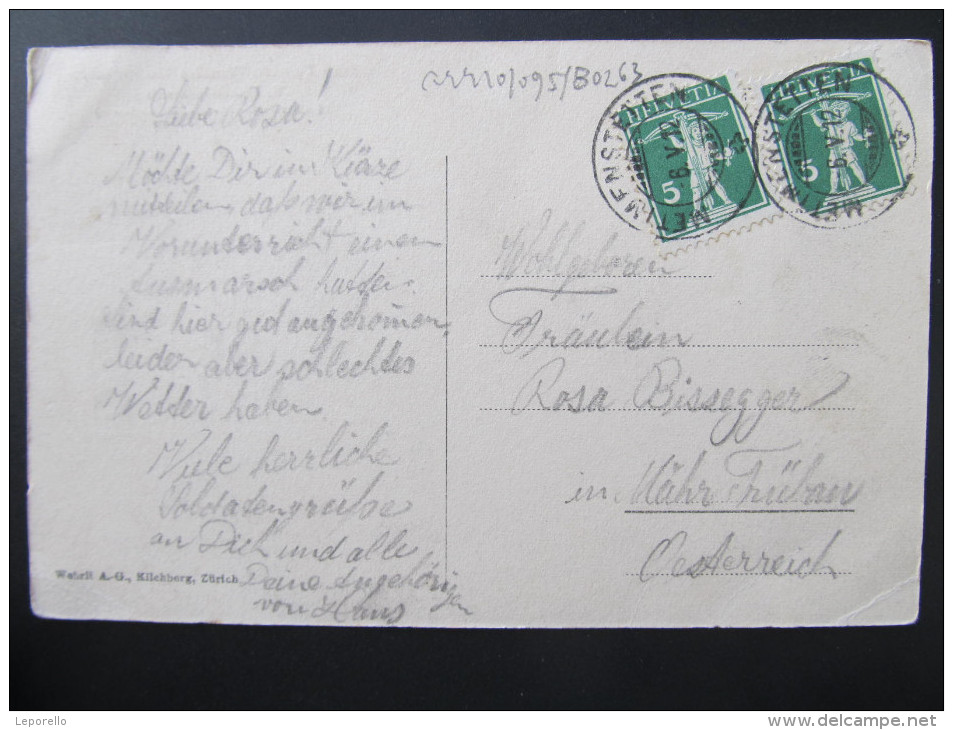 Liebe Rosa!
Möchte Dir in Kürze
mitteilen, daß wir im
Vorunterricht einen
Ausmarsch hatten.
Sind hier gut angekommen,
leider aber schlechtes
Wetter haben.
Viele herrliche
Soldatengrüße
an Dich und alle
Deine Angehörigen
von Hans
Wehrli A.-G., Kilchberg, Zürich
HELVETIA
5
METTMENSTETTEN
HELVETIA
5
METTMENSTETTEN
Wohlgeboren
Fräulein
Rosa Bissegger
in Mähr Trübau
Oesterreich
Leporello
www.delcampe.net